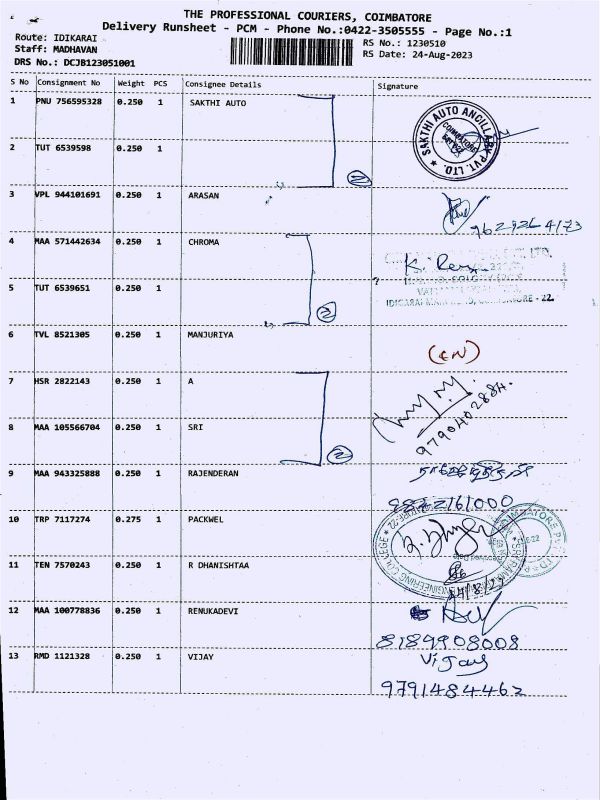 THE PROFESSIONAL COURIERS, COIMBATORE
Delivery Runsheet - PCM - Phone No.:0422-3505555 - Page No.:1
Route: IDIKARAI
RS No.: 1230510
Staff: MADHAVAN
RS Date: 24-Aug-2023
DRS No.: DCJB123051001
S No Consignment No Weight PCS Consignee Details Signature
1 PNU 756595328 0.250 1 SAKTHI AUTO
SAKTHI AUTO ANCILLARY PVT. LTD.
COIMBATORE
2 TUT 6539598 0.250 1
2
3 VPL 944101691 0.250 1 ARASAN
4 MAA 571442634 0.250 1 CHROMA
LTD.
5 TUT 6539651 0.250 1
2
- 22
6 TVL 8521305 0.250 1 MANJURIYA
7 HSR 2822143 0.250 1 A
9790402884
8 MAA 105566704 0.250 1 SRI
2
9 MAA 943325888 0.250 1 RAJENDERAN
10 TRP 7117274 0.275 1 PACKWEL
ENGINEERING COLLEGE
11 TEN 7570243 0.250 1 R DHANISHTAA
12 MAA 100778836 0.250 1 RENUKADEVI
8189908008
13 RMD 1121328 0.250 1 VIJAY
Vijay
9791484462